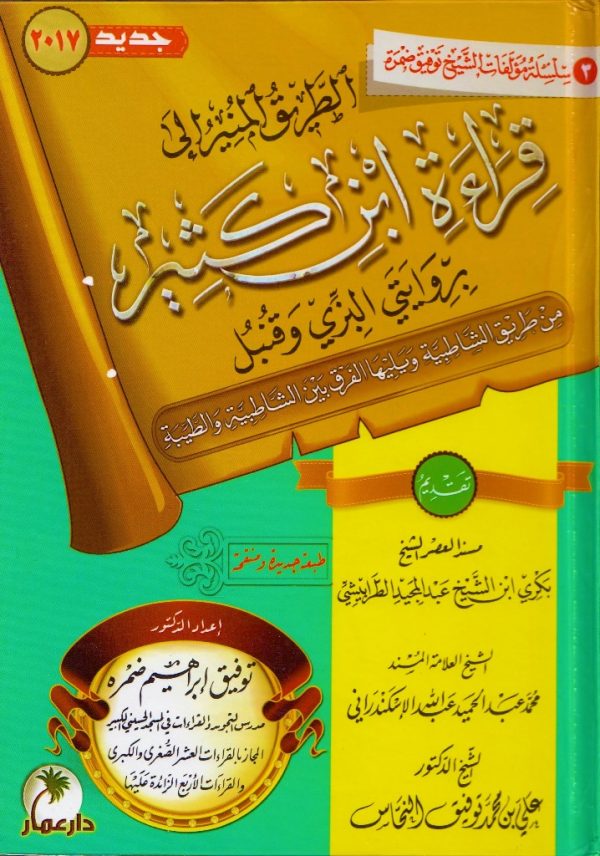 جديد ٢٠١٧
٣ سلسلة مؤلفات الشيخ توفيق ضمرة
الطَّرِيقُ المُنِيرُ إلى
قِرَاءَةِ ابْنِ كَثِيرٍ
بِرِوَايَتَي البِزِّي وَقُنْبُل
مِنْ طَرِيقِ الشَّاطِبِيَّة وَيَلِيهَا الفَرْقُ بَيْنَ الشَّاطِبِيَّةِ وَالطَّيِّبَةِ
تَقْدِيمُ
مسند العصر الشيخ
بكري ابن الشَّيْخ عبد المجيد الطرابيشي
الشيخ العلامة المسند
محمد عبد الحميد عبد الله الإسكندراني
الشيخ الدكتور
علي بن محمد توفيق النحاس
طبعة جديدة ومنقحة
إعداد الدكتور
توفيق إبراهيم ضمره
مدرس التجويد والقراءات في المسجد الحسيني الكبير
المجاز بالقراءات العشر الصُّغرى والكبرى
والقراءات الأربع الزائدة عليها
دار عمار